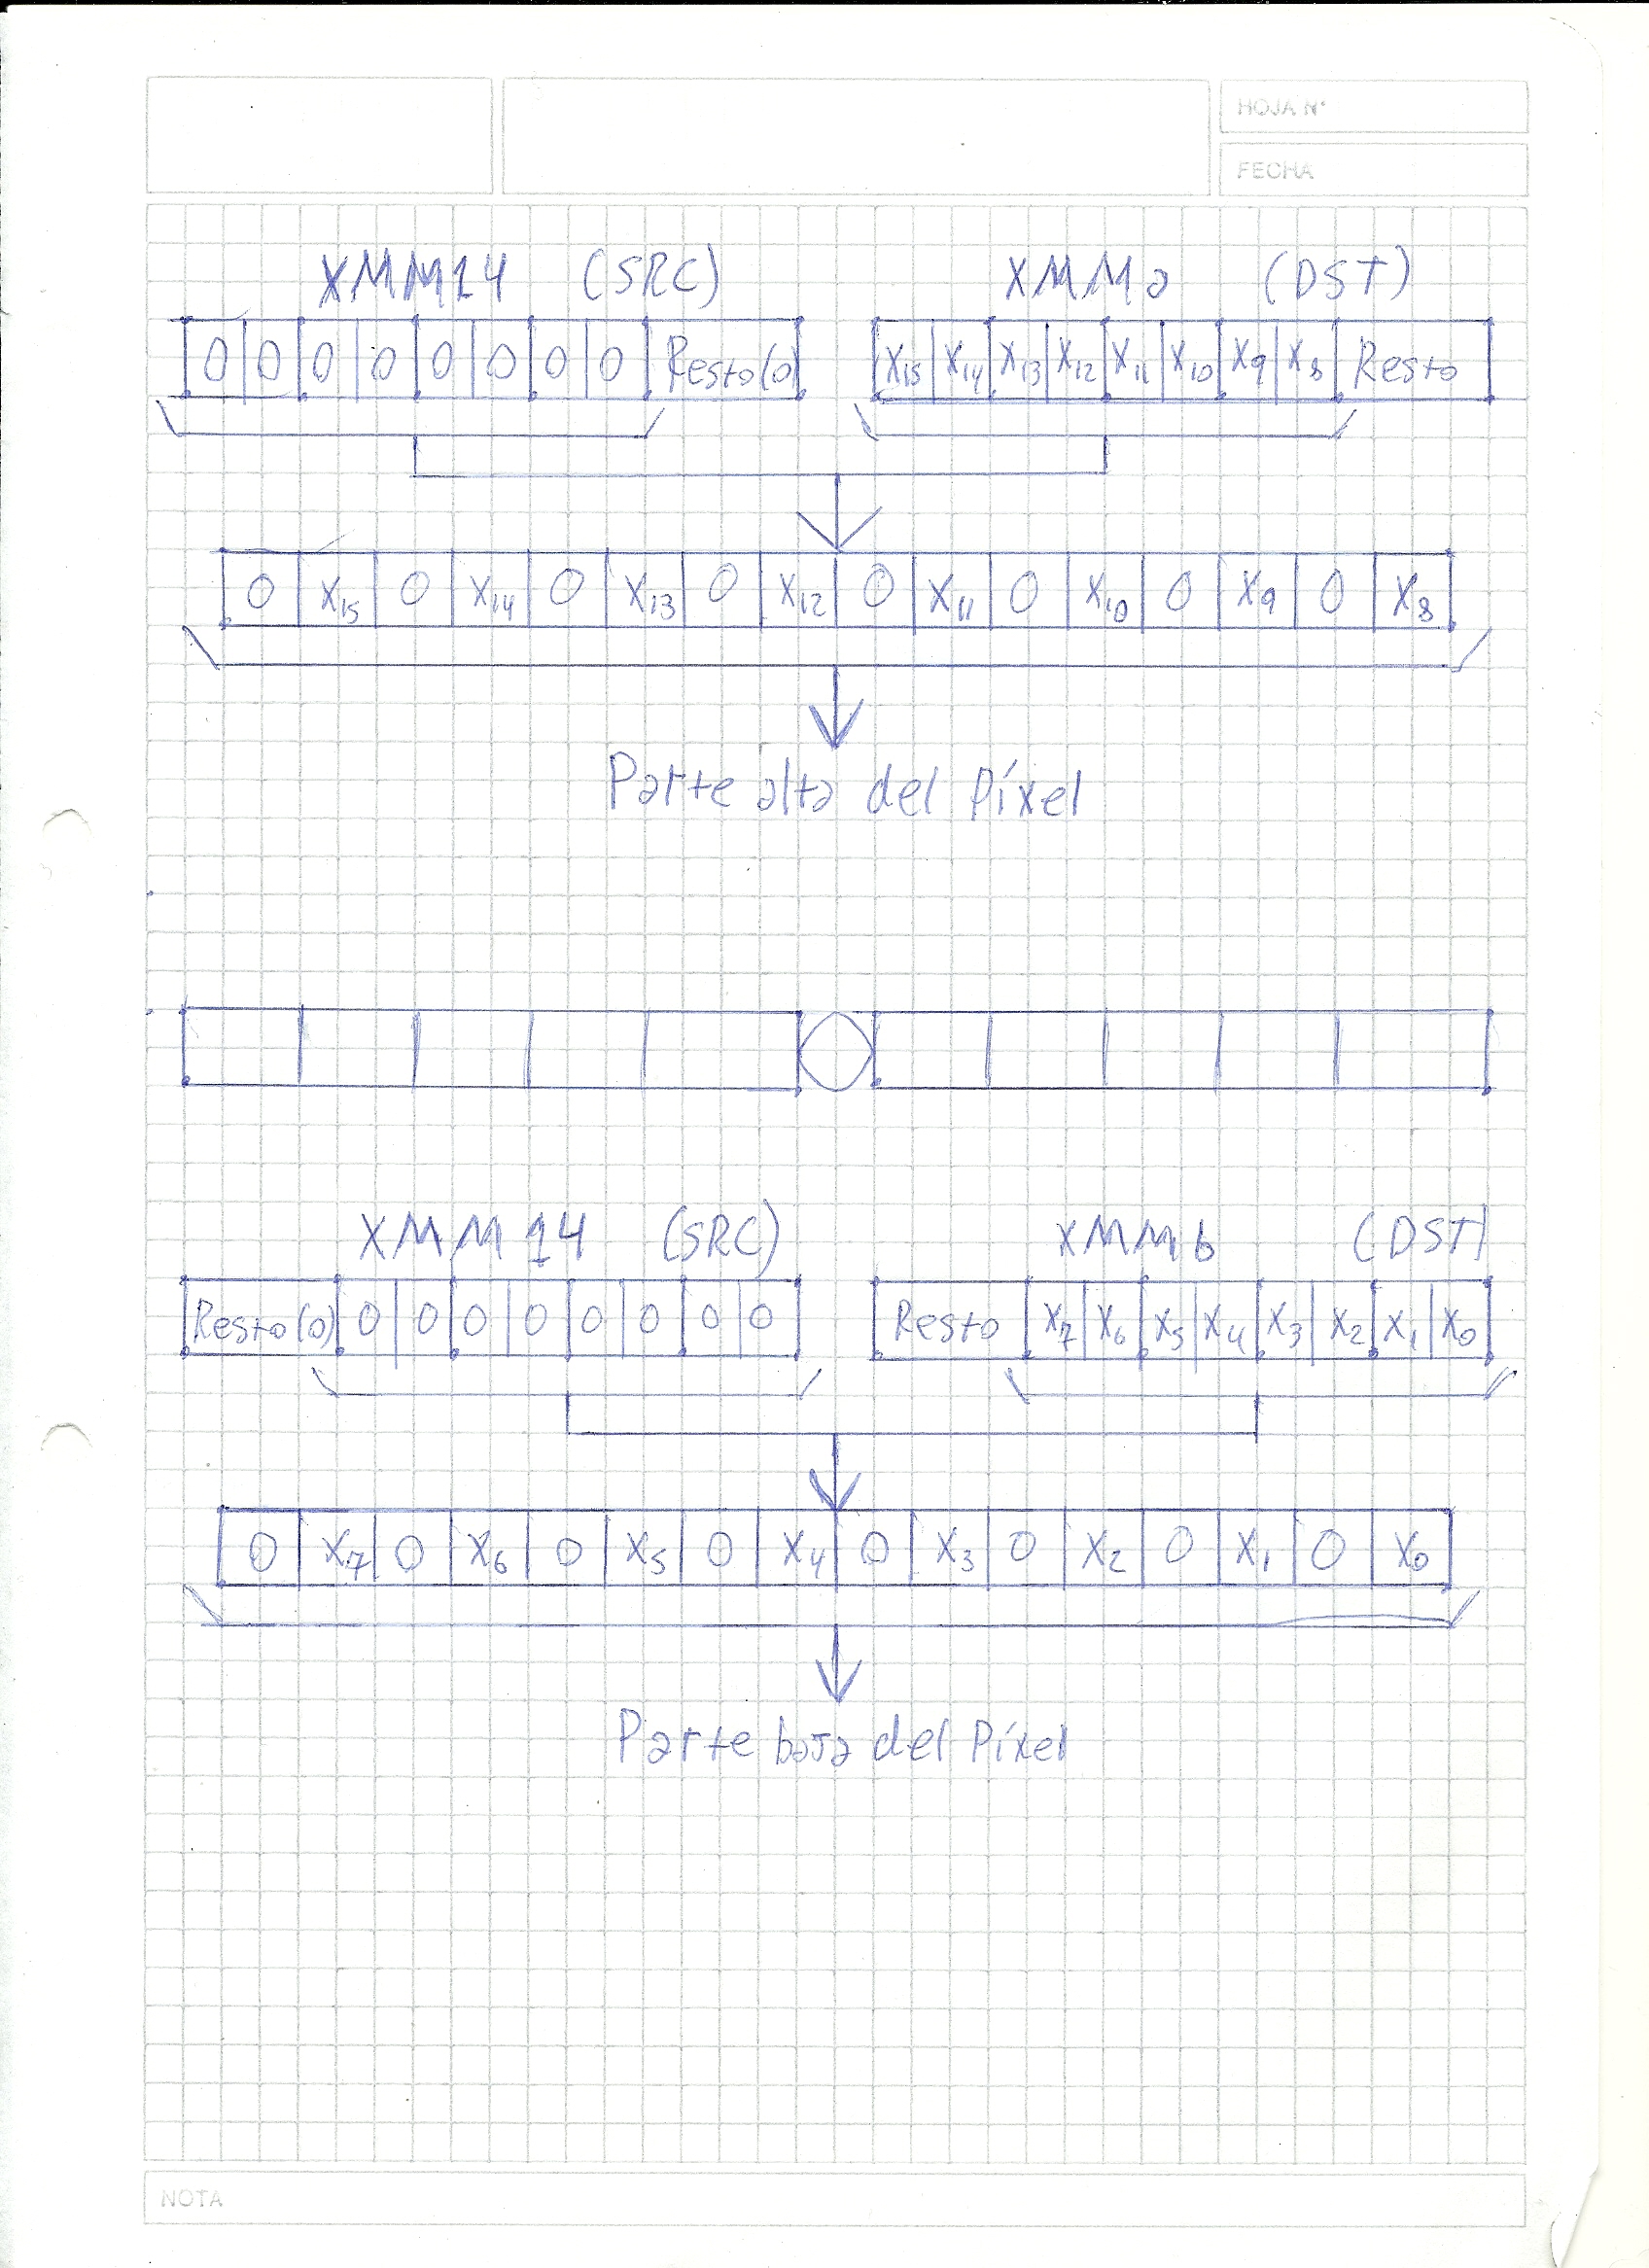 HOJA N°
FECHA
XMM14 (SRC) XMMa (DST)
0 0 0 0 0 0 0 0 Resto(0) X15 X14 X13 X12 X11 X10 X9 X8 Resto
0 X15 0 X14 0 X13 0 X12 0 X11 0 X10 0 X9 0 X8
Parte alta del Píxel
XMM14 (SRC) XMMb (DST)
Resto(0) 0 0 0 0 0 0 0 0 Resto X7 X6 X5 X4 X3 X2 X1 X0
0 X7 0 X6 0 X5 0 X4 0 X3 0 X2 0 X1 0 X0
Parte baja del Píxel
NOTA